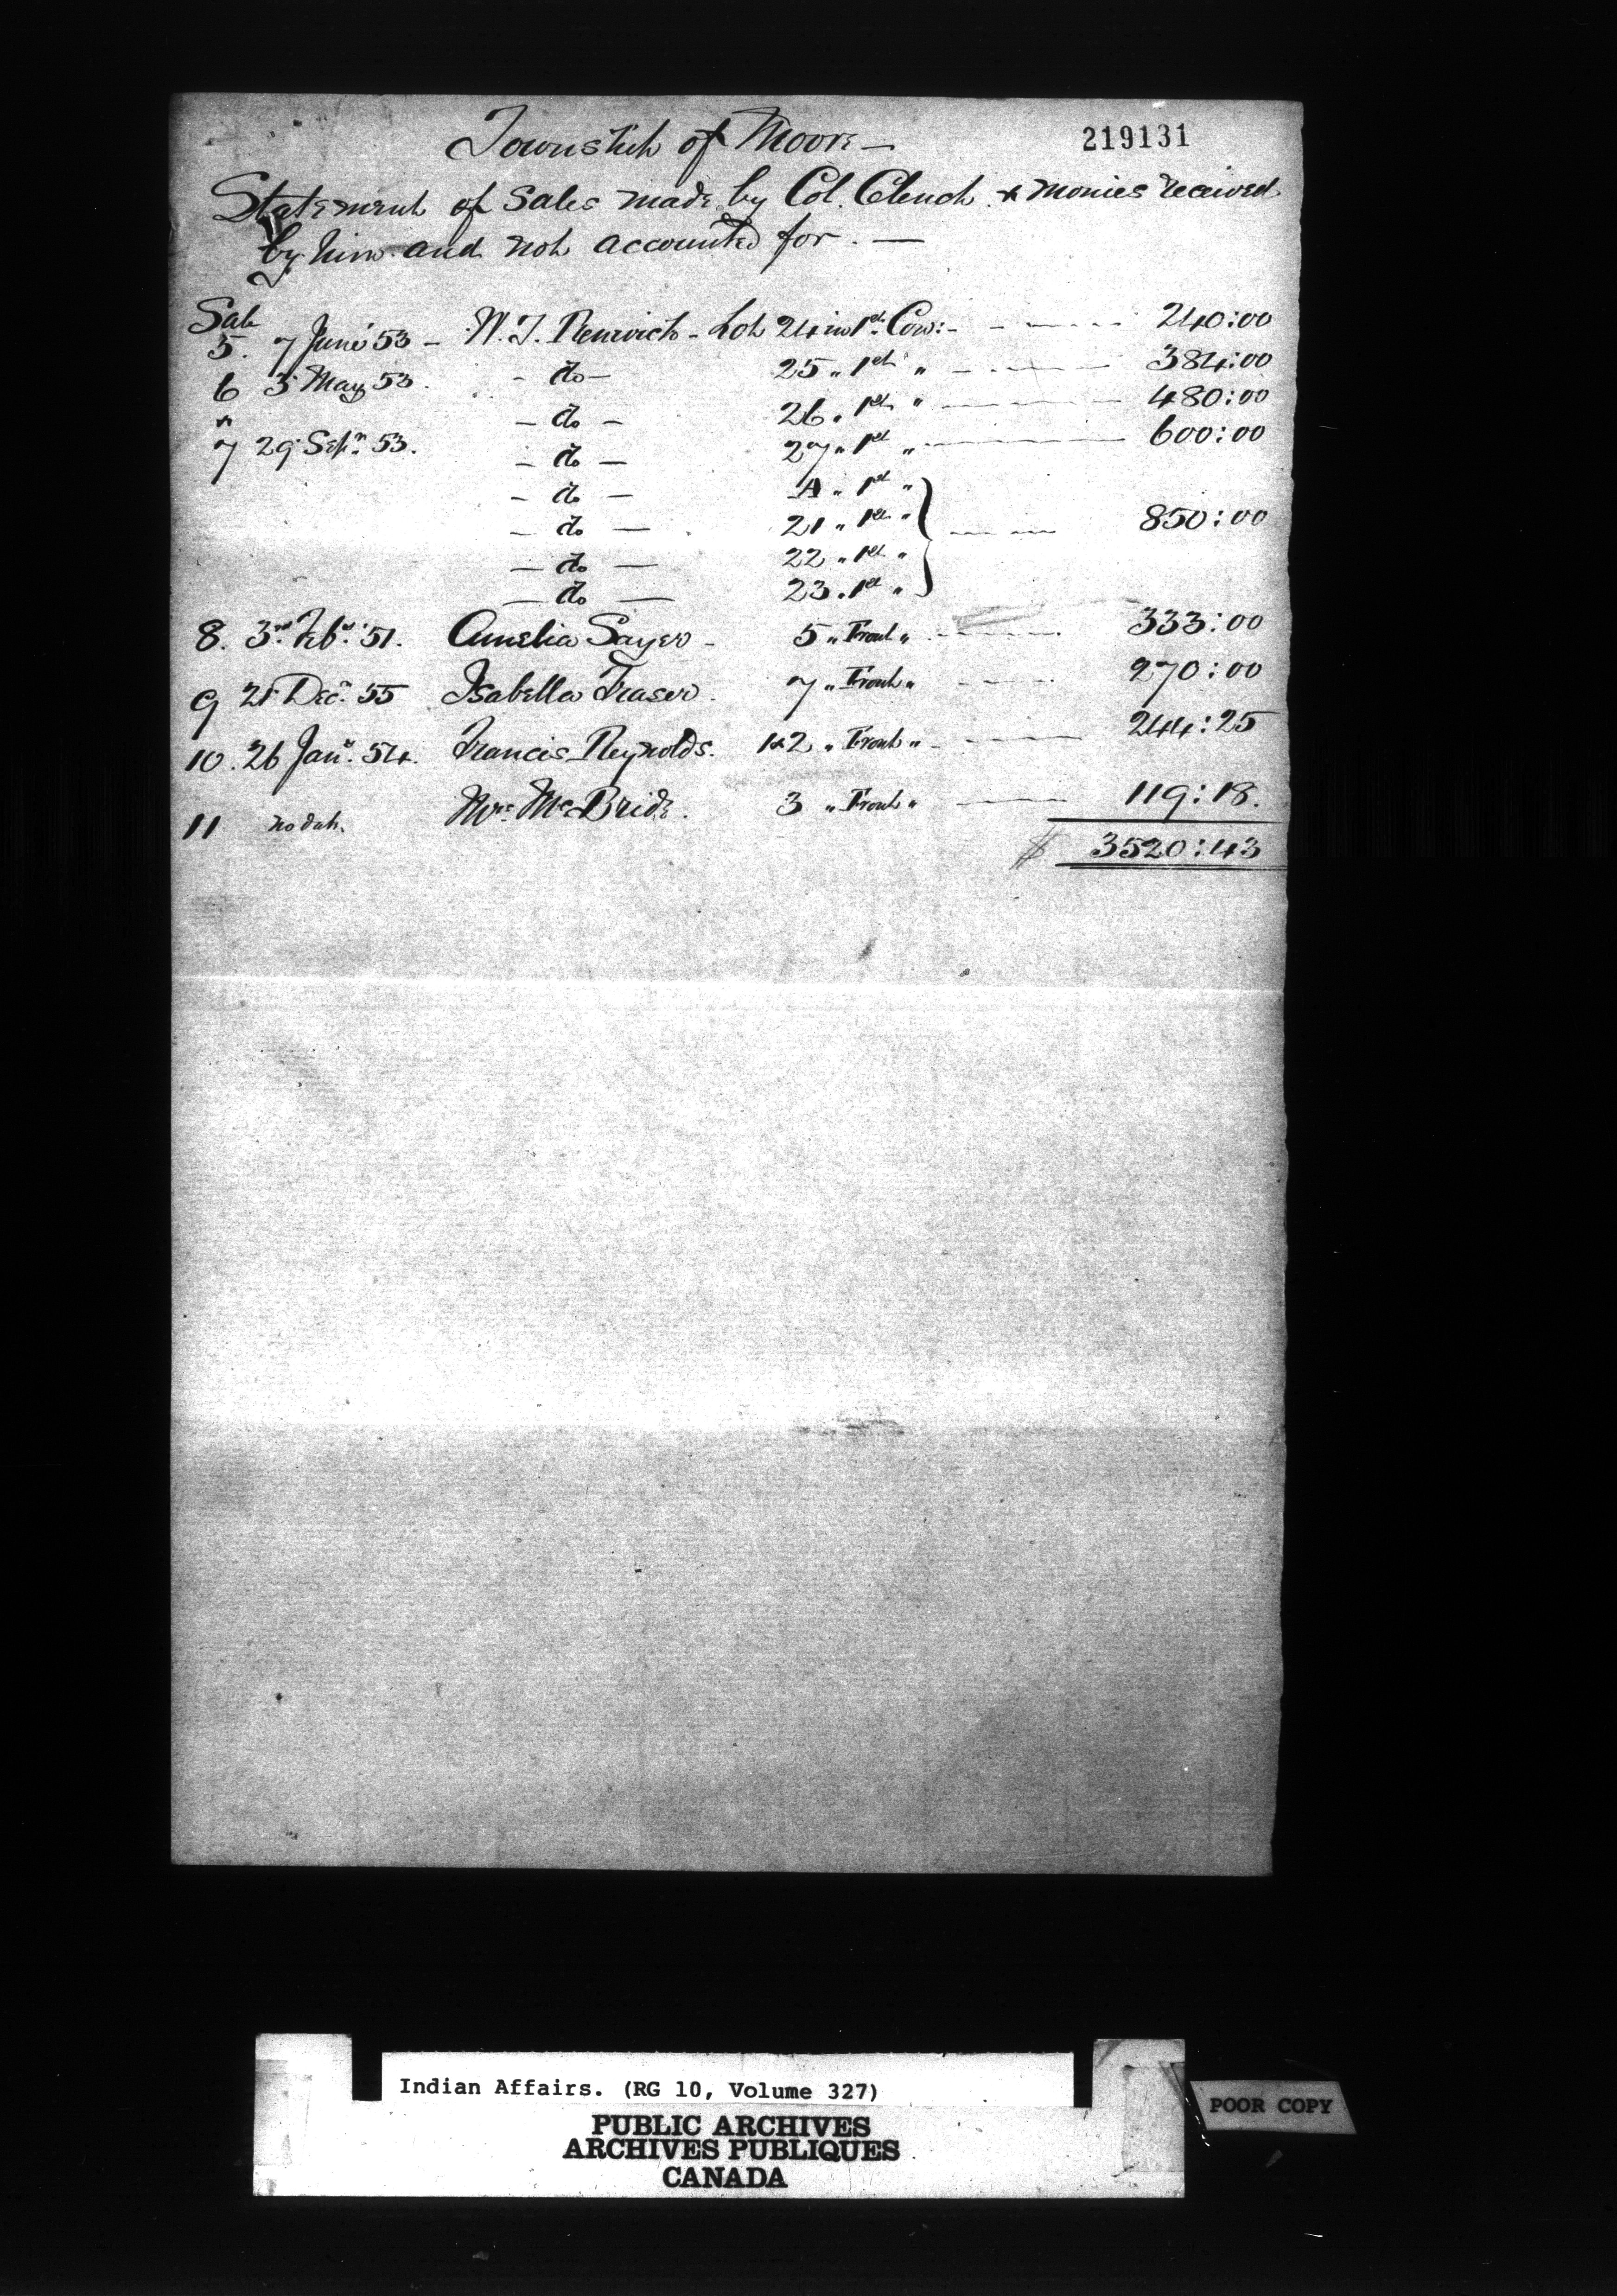 219131
Township of Moore —
Statement of Sales made by Col. Clench & monies received
by him and not accounted for. —
Sale
5. 7 June 53 — W. T. Renwick - Lot 24 in 1st Con: - 240:00
6 3 May 53. - do - 25 " 1st " - 384:00
" - do - 26 " 1st " - 480:00
7 29 Sepr. 53. - do - 27 " 1st " - 600:00
- do - A " 1st "
- do - 21 " 1st " - 850:00
- do - 22 " 1st "
- do - 23 " 1st "
8. 3rd Feby. '51. Amelia Sayer - 5 " Front " - 333:00
9 21 Decr. 55 Isabella Fraser. 7 " Front " - 270:00
10. 26 Jany. 54. Francis Reynolds. 1 & 2 " Front " - 244:25
11 no date. Mrs. McBride. 3 " Front " - 119:18.
$ 3520:43
Indian Affairs. (RG 10, Volume 327)
PUBLIC ARCHIVES
ARCHIVES PUBLIQUES
CANADA
POOR COPY